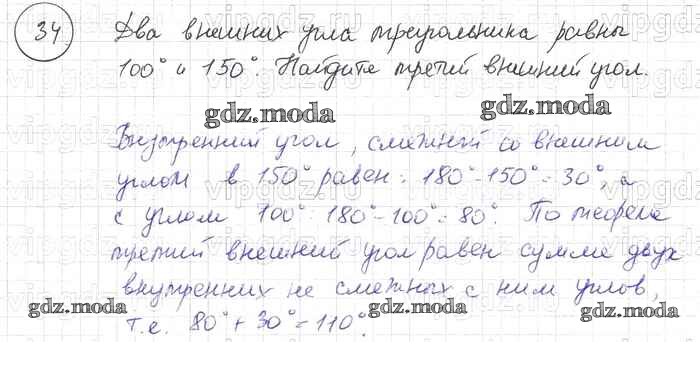 34
Два внешних угла треугольника равны
100° и 150°. Найдите третий внешний угол.
gdz.moda
gdz.moda
Внутренний угол, смежный со внешним
углом в 150° равен: 180°-150°=30°, а
с углом 100°: 180°-100°=80°. По теореме
третий внешний угол равен сумме двух
внутренних не смежных с ним углов,
gdz.moda
gdz.moda
gdz.moda
т.е. 80°+30°=110°.